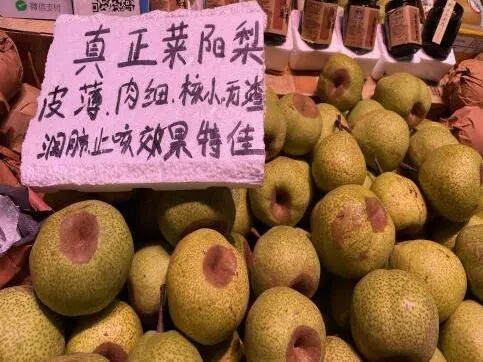 微信支付
真正莱阳梨
皮薄、肉细、核小、无渣
润肺止咳效果特佳